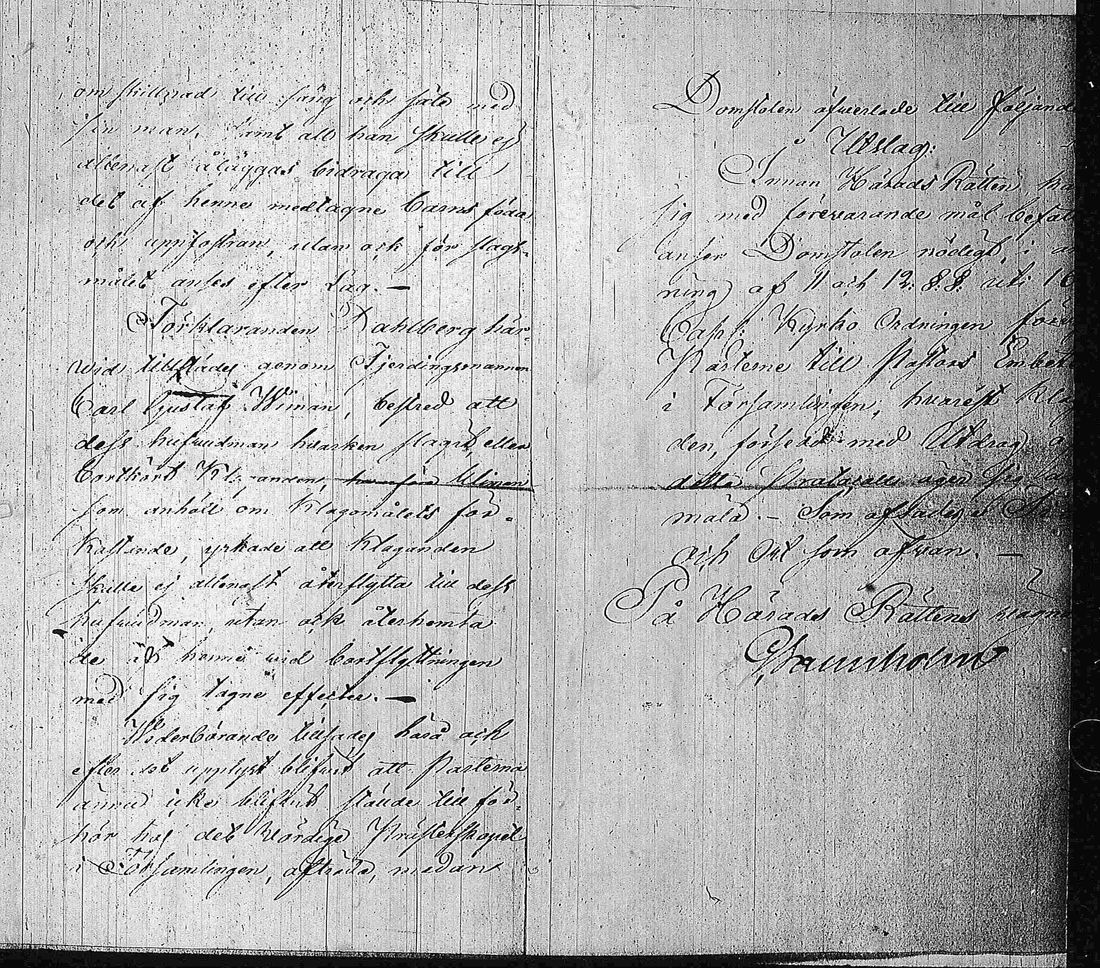 om skillnad till säng och säte med
sin man, samt att han skulle ej
allenast åläggas bidraga till
det af henne medtagne barns föda
och uppfostran, utan ock för slags-
målet anses efter lag. —
Förklaranden Dahlberg här-
wid tillstädes genom Fjerdingsmannen
Carl Gustaf Wiman, bestred att
dess hufvudman hvarken slagit eller
bortkört Klanden, Wiman
som anhöll om Klagomålets för-
kastande, yrkade att Klaganden
skulle ej allenast återflytta till dess
hufvudman, utan ock återhemta
de af henne vid bortflyttningen
med sig tagne effecter. —
Wederbörande tillsades härå och
efter det upplyst blifvit att Parterna
ännu icke blifvit stände till för-
hör hos det Wördige Presterskapet
i Församlingen, afträda, medan
Domstolen öfverlade till följande
Utslag:
Innan Härads Rätten
sig med förevarande mål befa
anser Domstolen nödigt, i
ning af 11 och 12 §§ uti 16
Cap: Kyrko Ordningen för
Parterne till Pastors Embet
i Församlingen, hvarest Kla
den, försedd med Utdrag
detta Protocoll äger sig
mäla. — Som afsades
och Ort som ofvan. —
På Härads Rättens vägna